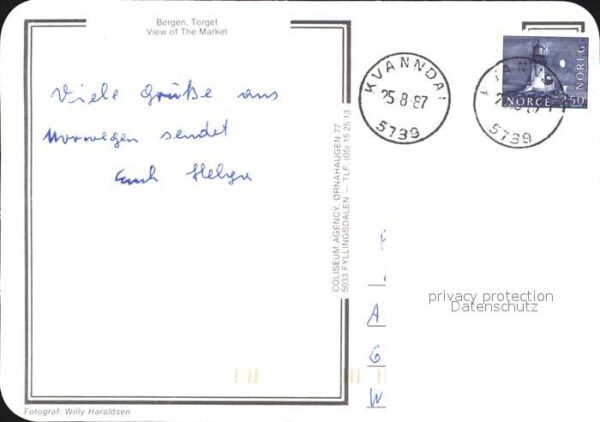 Bergen, Torget
View of The Market
Viele Grüße aus
Norwegen sendet
Euch Helga
COLISEUM AGENCY, ØRNAHAUGEN 77
5033 FYLLINGSDALEN — TLF. (05) 15 25 13
KVANNDAL
25.8.87
5739
KVANND
87
5739
NORGE 250
NOREG
A
G
W
privacy protection
Datenschutz
Fotograf: Willy Haraldsen